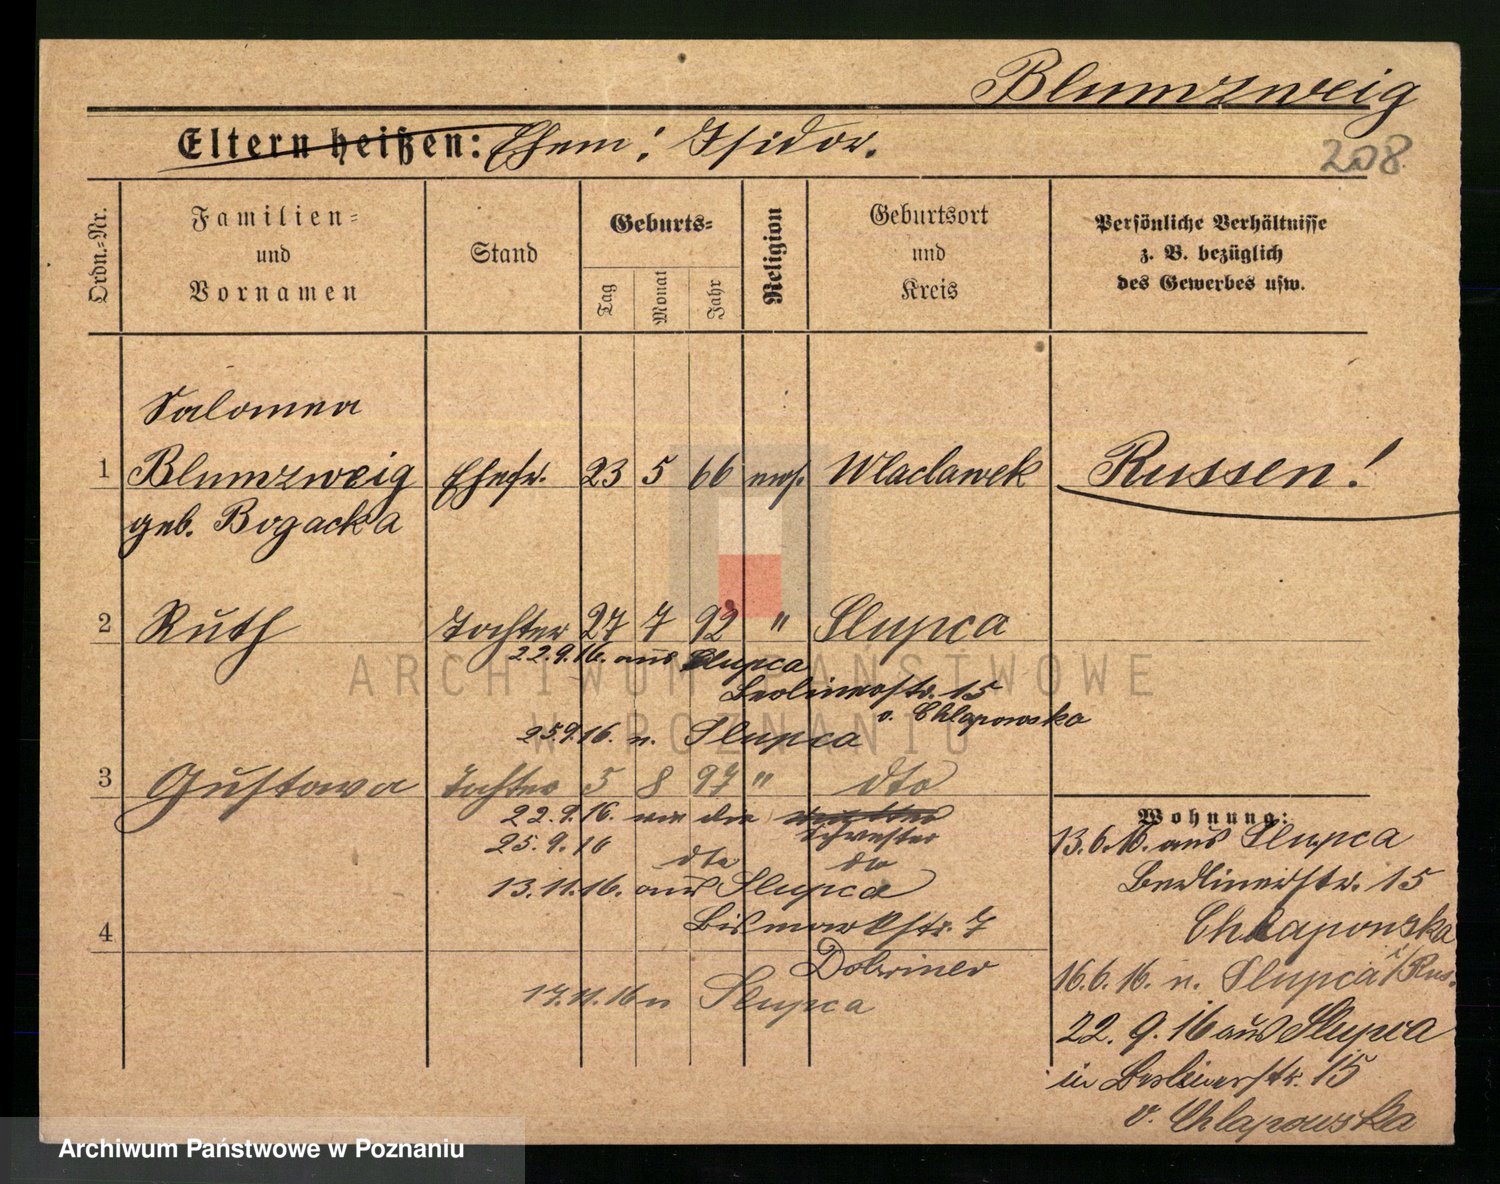 Blumzweig
Eltern heißen: Ehem: Isidor.
208
Ordn.=Nr.
Familien=
und
Vornamen
Stand
Geburts=
Tag
Monat
Jahr
Religion
Geburtsort
und
Kreis
Persönliche Verhältnisse
z. B. bezüglich
des Gewerbes usw.
Salomea
1 Blumzweig Ehefr. 23 5 66 mos. Wlaclawek Russen!
geb. Bogacka
2 Ruth Tochter 27 7 92 " Slupca
22.9.16. aus Slupca
Berlinerstr. 15
v. Chlapowska
25.9.16. n. Slupca
3 Gustawa Tochter 5 8 97 " dto
22.9.16. wie die
Schwester
25.9.16 dto dto
13.11.16. aus Slupca
Bismarckstr. 7
4
Dobriner
17.11.16 n Slupca
Wohnung:
13.6.16. aus Slupca
Berlinerstr. 15
Chlaponska
16.6.16. n. Slupca i/Rus.
22.9.16 aus Slupca
in Berlinerstr. 15
v. Chlapowska
ARCHIWUM PAŃSTWOWE
W POZNANIU
Archiwum Państwowe w Poznaniu